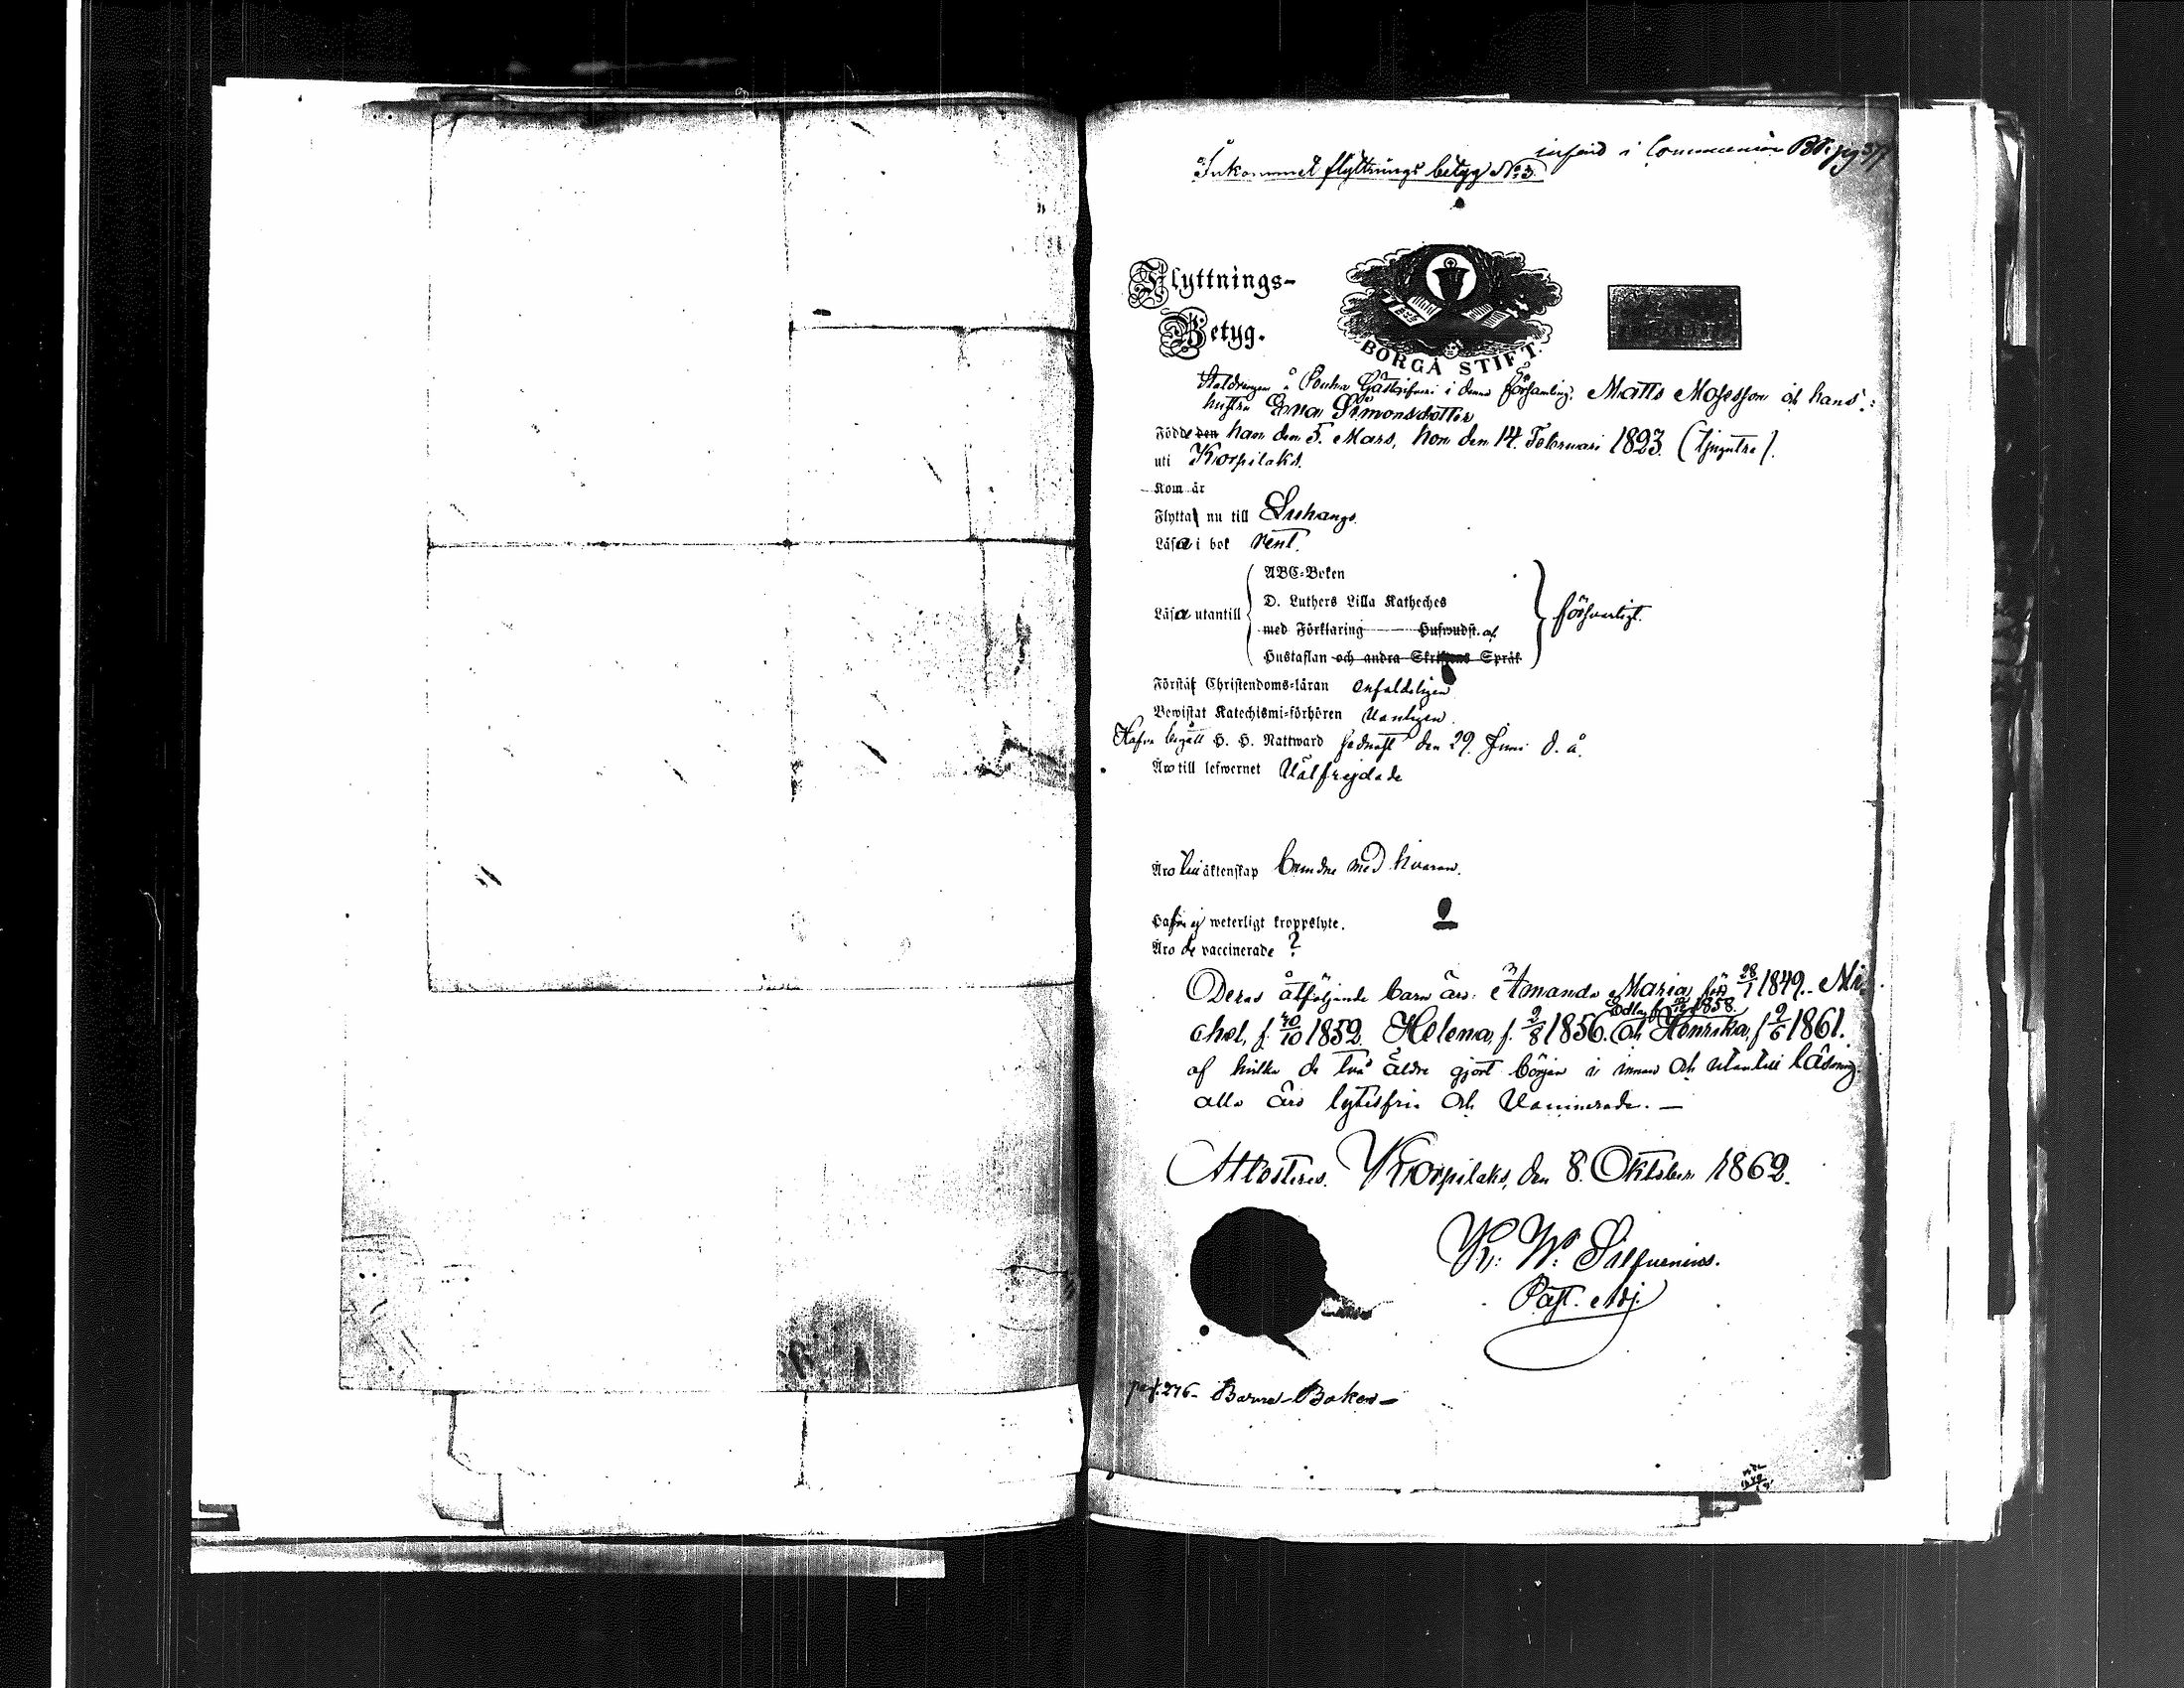 införd i Communion Bk. pg 37
Inkommet flyttnings betyg No 3.
Flyttnings-
Betyg.
BORGÅ STIFT.
Staldrängen å Gästgifveri i denna församling, Matts Mosesson och hans
hustru Simonsdotter
Födde den han den 5. Mars, hon den 14. Februari 1823. (tjugutre).
uti Korpilaks.
Kom år
Flytta nu till Luhango.
Läsa i bok rent.
ABC-Boken
D. Luthers Lilla Katheches
Läsa utantill försvarligt.
med Förklaring Hufwudst. af
Hustaflan och andra Skriftens Språk
Förstå Christendoms-läran enfaldeligen
Bewistat Katechismi-förhören vanligen.
Hafva begått H. H. Nattward sednast den 29. Juni d. å.
Äro till lefwernet Välfrejdade
Äro äktenskap bundne med hvaran.
Hafva ej weterligt kroppslyte.
Äro de vaccinerade ?
Deras åtföljande barn äro: Amanda Maria, född 28/1 1849. Mi-
1858.
chel, f. 1852. Helena, f. 2/8 1856. och Henrika, f 1861.
af hvilka de två äldre gjort början i innan och utantill läsning.
alla äro lytesfria och Vaccinerade. —
Attesteras. Korpilaks, den 8. Oktober 1862.
K: W: Silfvenius.
Past. Adj.
pag. 276 - Barna-Boken -